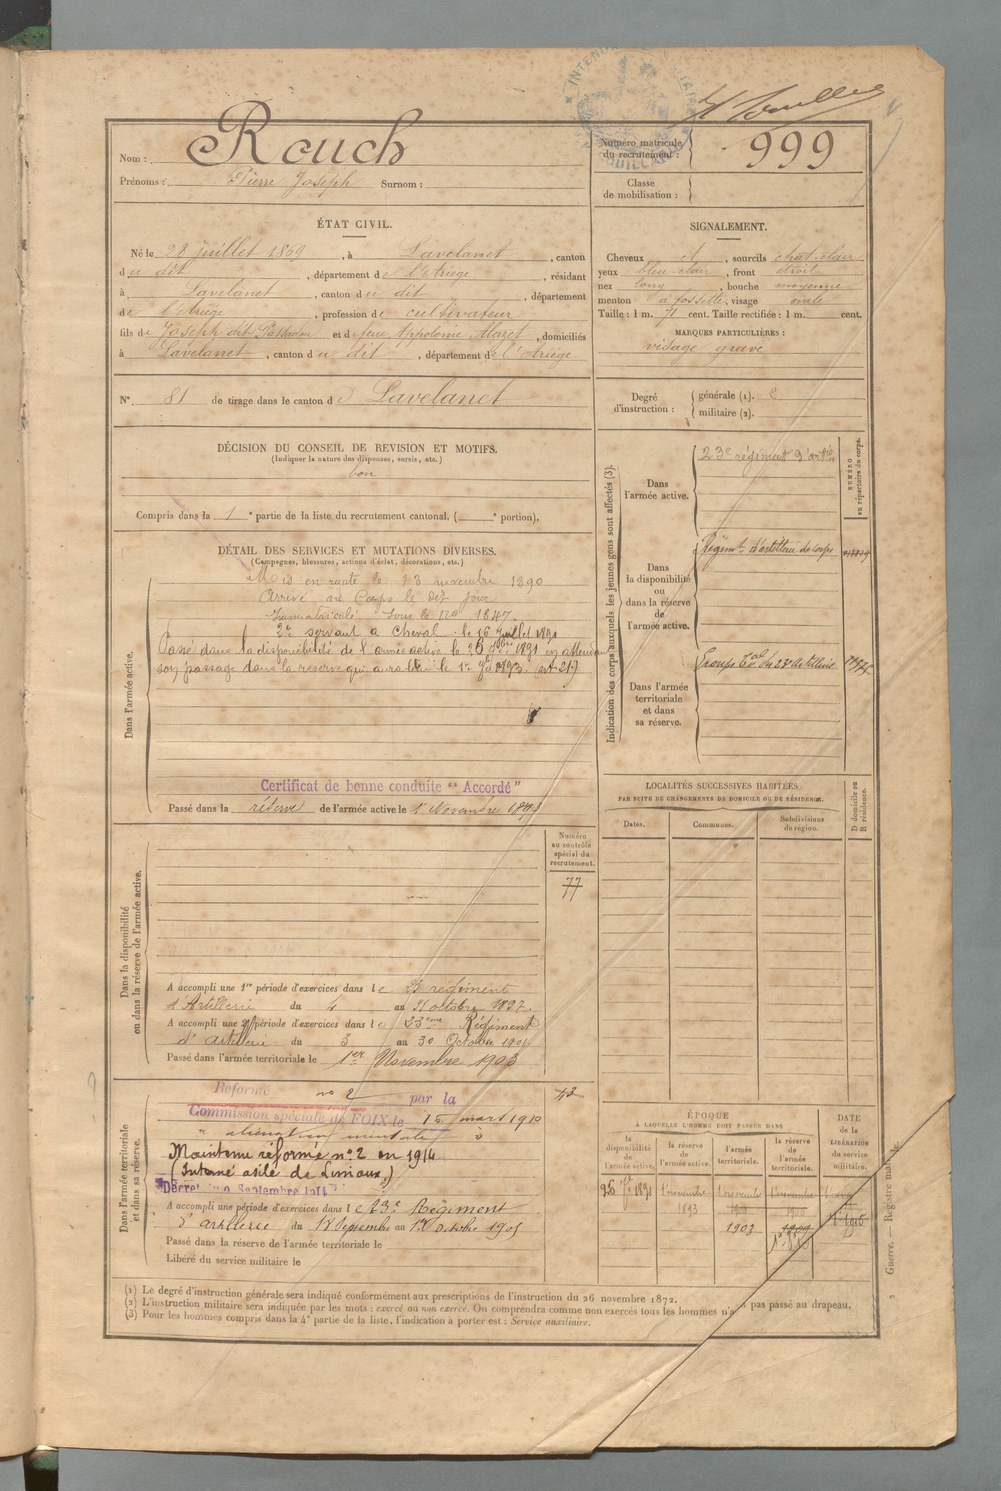 Nom : Rouch
Prénoms : Pierre Joseph Surnom :
Numéro matricule du recrutement : 999
Classe de mobilisation :
ÉTAT CIVIL.
Né le 28 juillet 1869, à Lavelanet, canton
du dit, département de l'Ariège, résidant
à Lavelanet, canton du dit, département
de l'Ariège, profession de cultivateur
fils de Joseph dit et de feue Appolonie, domiciliés
à Lavelanet, canton du dit, département de l'Ariège
N° 81 de tirage dans le canton de Lavelanet
SIGNALEMENT.
Cheveux et, sourcils chat. clair
yeux bleu clair, front étroit
nez long, bouche moyenne
menton à fossette, visage ovale
Taille : 1 m. 71 cent. Taille rectifiée : 1 m. cent.
MARQUES PARTICULIÈRES :
visage gravé
Degré d'instruction :
générale (1). 2
militaire (2).
DÉCISION DU CONSEIL DE REVISION ET MOTIFS.
(Indiquer la nature des dispenses, sursis, etc.)
bon
Compris dans la 1e partie de la liste du recrutement cantonal. ( e portion).
DÉTAIL DES SERVICES ET MUTATIONS DIVERSES.
(Campagnes, blessures, actions d'éclat, décorations, etc.)
Dans l'armée active.
Mis en route le 13 novembre 1890
Arrivé au Corps le dit jour
Immatriculé sous le No 1847.
2e servant à cheval le 16 juillet 1891
Passé dans la disponibilité de l'armée active le 26 7bre 1891 en attendant
son passage dans la réserve qui aura lieu le 1er 9bre 1893. (art 21)
Certificat de bonne conduite "Accordé"
Passé dans la réserve de l'armée active le 1er Novembre 1893
Indication des corps auxquels les jeunes gens sont affectés (3).
NUMÉRO au répertoire du corps.
Dans l'armée active.
23e régiment d'artie.
Dans la disponibilité ou dans la réserve de l'armée active.
Régimt d'artillerie de corps
Dans l'armée territoriale et dans sa réserve.
Groupe du 23e d'artillerie
LOCALITÉS SUCCESSIVES HABITÉES
PAR SUITE DE CHANGEMENTS DE DOMICILE OU DE RÉSIDENCE.
D domicile ou R résidence.
Dates.
Communes.
Subdivisions de région.
Numéro au contrôle spécial du recrutement.
77
Dans la disponibilité ou dans la réserve de l'armée active.
A accompli une 1re période d'exercices dans le 23 régiment
d'Artillerie du 4 au 31 octobre 1897.
A accompli une 2e période d'exercices dans le 23eme Régiment
d'artillerie du 3 au 30 Octobre
Passé dans l'armée territoriale le 1er Novembre 1903
Dans l'armée territoriale et dans sa réserve.
Réformé no 2 par la
Commission spéciale de FOIX le 16 mars 1910
"aliénation mentale"
Maintenu réformé n° 2 en 1914
(Interné asile de Limoux)
Décret du 9 Septembre 1914
A accompli une période d'exercices dans le 23e Régiment
d'artillerie du Septembre au Octobre 1905
Passé dans la réserve de l'armée territoriale le
Libéré du service militaire le
ÉPOQUE
À LAQUELLE L'HOMME DOIT PASSER DANS
la disponibilité de l'armée active.
la réserve de l'armée active.
l'armée territoriale.
la réserve de l'armée territoriale.
DATE de la LIBÉRATION du service militaire.
26 7bre 1891
1er novembre 1893
1er novembre 1903
(1) Le degré d'instruction générale sera indiqué conformément aux prescriptions de l'instruction du 26 novembre 1872.
(2) L'instruction militaire sera indiquée par les mots : exercé ou non exercé. On comprendra comme non exercés tous les hommes n'a pas passé au drapeau.
(3) Pour les hommes compris dans la 4e partie de la liste, l'indication à porter est : Service auxiliaire.
Guerre. — Registre